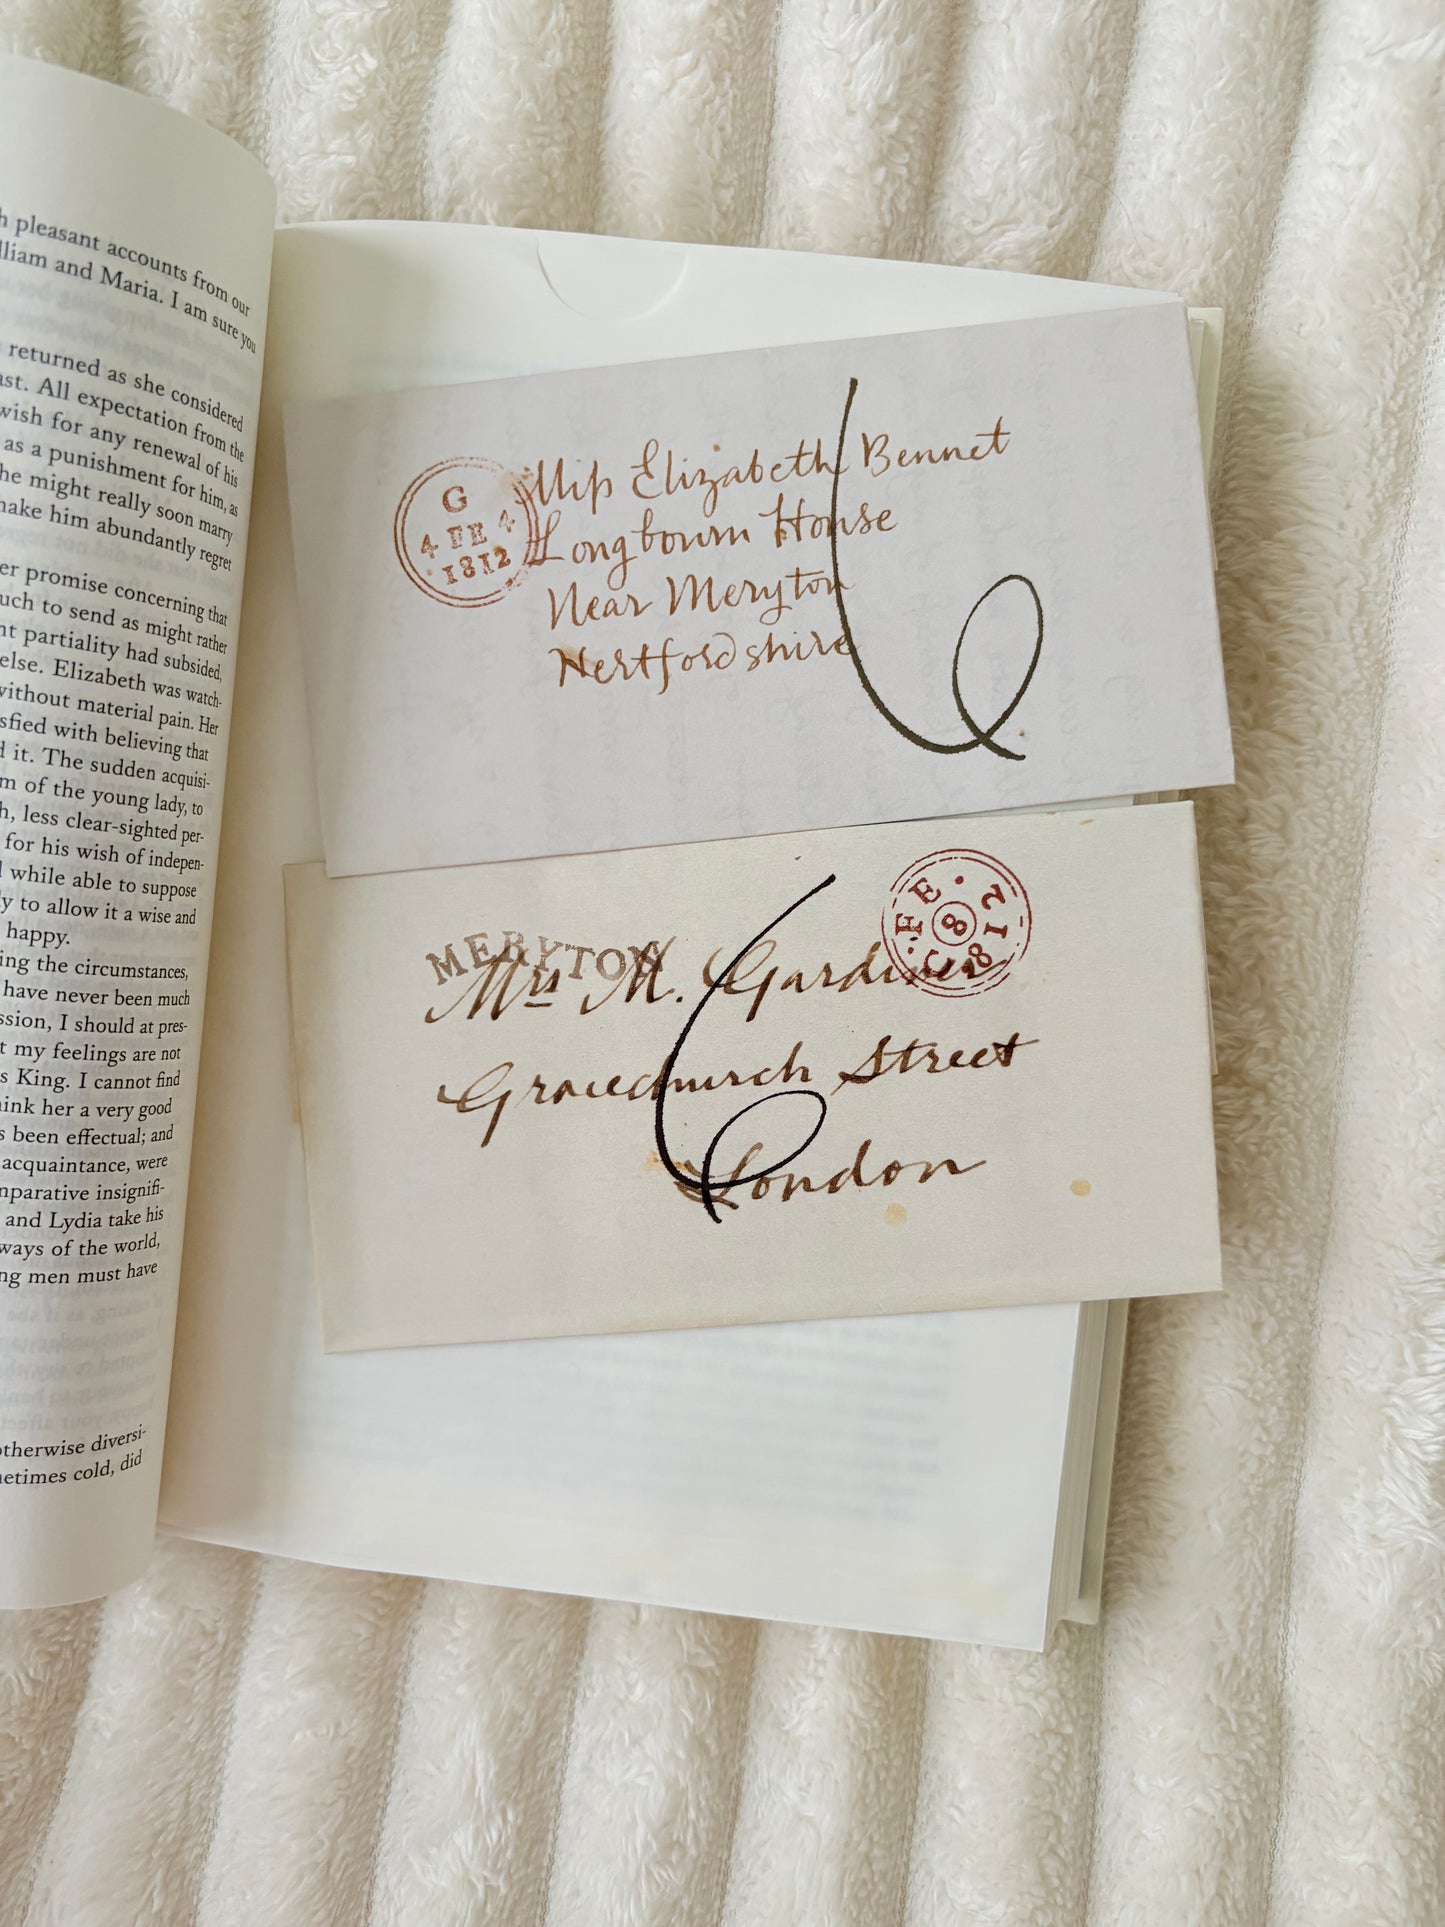 pleasant accounts from our
and Maria. I am sure you
returned as she considered
All expectation from the
wish for any renewal of his
as a punishment for him, as
he might really soon marry
make him abundantly regret
er promise concerning that
uch to send as might rather
nt partiality had subsided,
else. Elizabeth was watch-
without material pain. Her
sfied with believing that
d it. The sudden acquisi-
m of the young lady, to
h, less clear-sighted per-
for his wish of indepen-
while able to suppose
ly to allow it a wise and
happy.
ing the circumstances,
have never been much
ssion, I should at pres-
t my feelings are not
s King. I cannot find
ink her a very good
s been effectual; and
acquaintance, were
mparative insignifi-
and Lydia take his
ways of the world,
ng men must have
otherwise diversi-
metimes cold, did
G
4 FE 4
1812
Miſs Elizabeth Bennet
Longbourn House
Near Meryton
Hertfordshire
MERYTON
FE
8
1812
Mrs M. Gardiner
Gracechurch Street
London